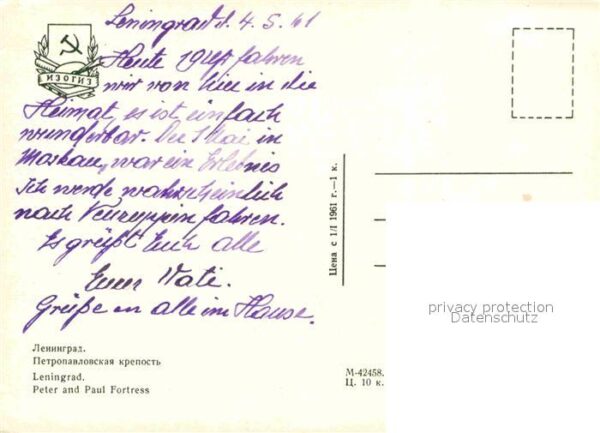 Leningrad d. 4.5.61
Heute 19 Uhr fahren
wir von hier in die
Heimat, es ist einfach
wunderbar. Der 1 Mai in
Moskau, war ein Erlebnis
Ich werde wahrscheinlich
nach fahren.
Es grüßt Euch alle
Euer Vati.
Grüße an alle im Hause.
ИЗОГИЗ
Цена с 1/I 1961 г.—1 к.
Ленинград.
Петропавловская крепость
Leningrad.
Peter and Paul Fortress
М-42458.
Ц. 10 к.
privacy protection
Datenschutz